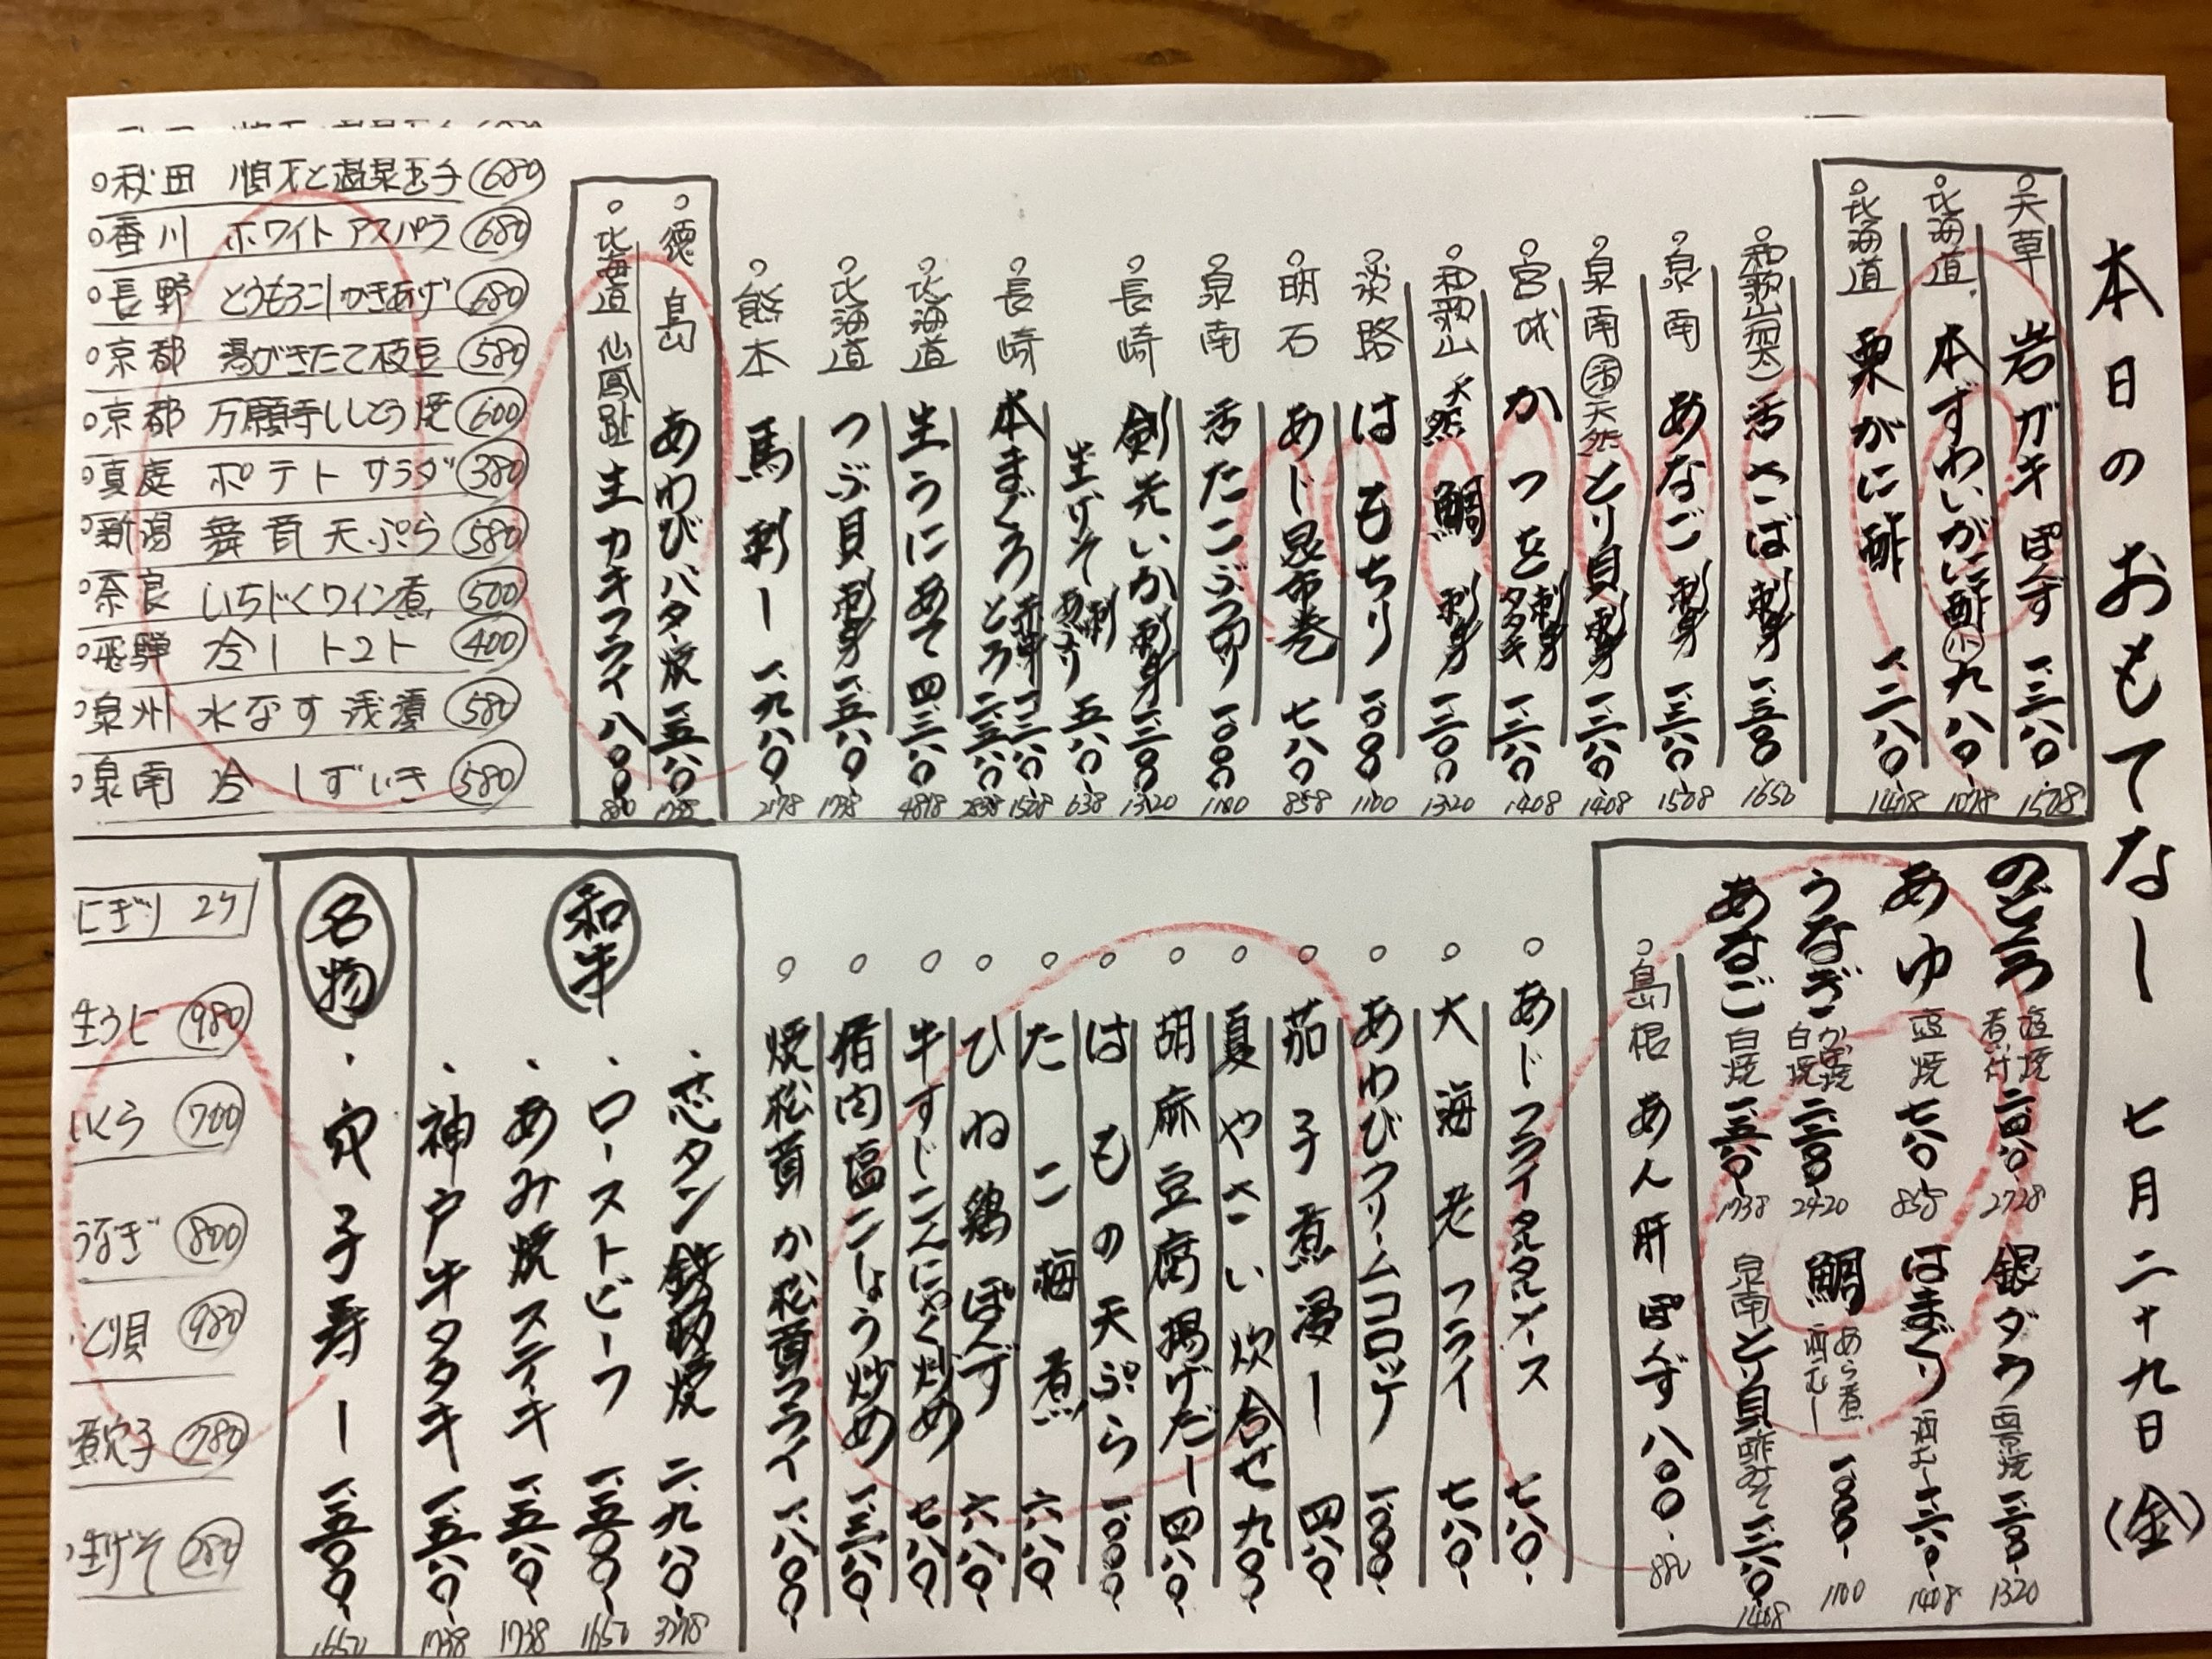 本日のおもてなし 七月二十九日(金)
天草 岩ガキ ぽんず 一、三八〇 1518
北海道 本ずわいがに酢 小 九八〇 1078
北海道 栗がに酢 一、二八〇 1408
和歌山 活さば 刺身 一、五〇〇 1650
泉南 あなご 刺身 一、三八〇 1508
泉南 活 天然 とり貝 刺身 一、二八〇 1408
宮城 かつを 刺身 タタキ 一、二八〇 1408
和歌山 天然 鯛 刺身 一、二〇〇 1320
淡路 はもちり 一、〇〇〇 1100
明石 あじ昆布巻 七八〇 858
泉南 活たこぶつ切り 一、〇〇〇 1100
長崎 剣先いか 刺身 一、二〇〇 1320
生げそ 刺 あぶり 五八〇 638
長崎 本まぐろ 赤身 一、三八〇 1508
とろ 二、五八〇 2838
北海道 生うにあて 四、三八〇 4818
北海道 つぶ貝 刺身 一、五八〇 1738
熊本 馬刺し 一、九八〇 2178
徳島 あわびバター焼 一、五八〇 1738
北海道 仙鳳趾 生カキフライ 八〇〇 880
秋田 順才と温泉玉子 680
香川 ホワイトアスパラ 680
長野 とうもろこしかきあげ 680
京都 湯がきたて枝豆 580
京都 万願寺ししとう焼 600
真庭 ポテトサラダ 380
新潟 舞茸天ぷら 580
奈良 いちじくワイン煮 500
飛騨 冷しトマト 400
泉州 水なす浅漬 580
泉南 冷しずいき 580
のどぐろ 塩焼 煮付 二、四八〇 2728
銀ダラ 西京焼 一、二〇〇 1320
あゆ 塩焼 七八〇 858
はまぐり 酒むし 一、二八〇 1408
うなぎ かば焼 白焼 二、二〇〇 2420
鯛 あら煮 酒むし 一、〇〇〇 1100
あなご 白焼 一、五八〇 1738
泉南 とり貝 酢みそ 一、二八〇 1408
島根 あん肝ぽんず 八〇〇 880
あじフライ タルタルソース 七八〇
大海老フライ 七八〇
あわびクリームコロッケ 一、〇〇〇
茄子煮浸し 四八〇
夏やさい炊合せ 九八〇
胡麻豆腐揚げだし 四八〇
はもの天ぷら 一、〇〇〇
たこ梅煮 六八〇
ひね鶏ぽんず 六八〇
牛すじこんにゃく炒め 七八〇
猪肉塩こしょう炒め 一、三八〇
焼松茸 か 松茸フライ 一、八〇〇
和牛
・芯タン鉄板焼 二、九八〇 3278
・ローストビーフ 一、五〇〇 1650
・あみ焼ステーキ 一、五八〇 1738
・神戸牛タタキ 一、五八〇 1738
名物
・穴子寿し 一、五〇〇 1650
にぎり 2ケ
生うに 980
いくら 700
うなぎ 800
とり貝 980
煮穴子 780
生げそ 280